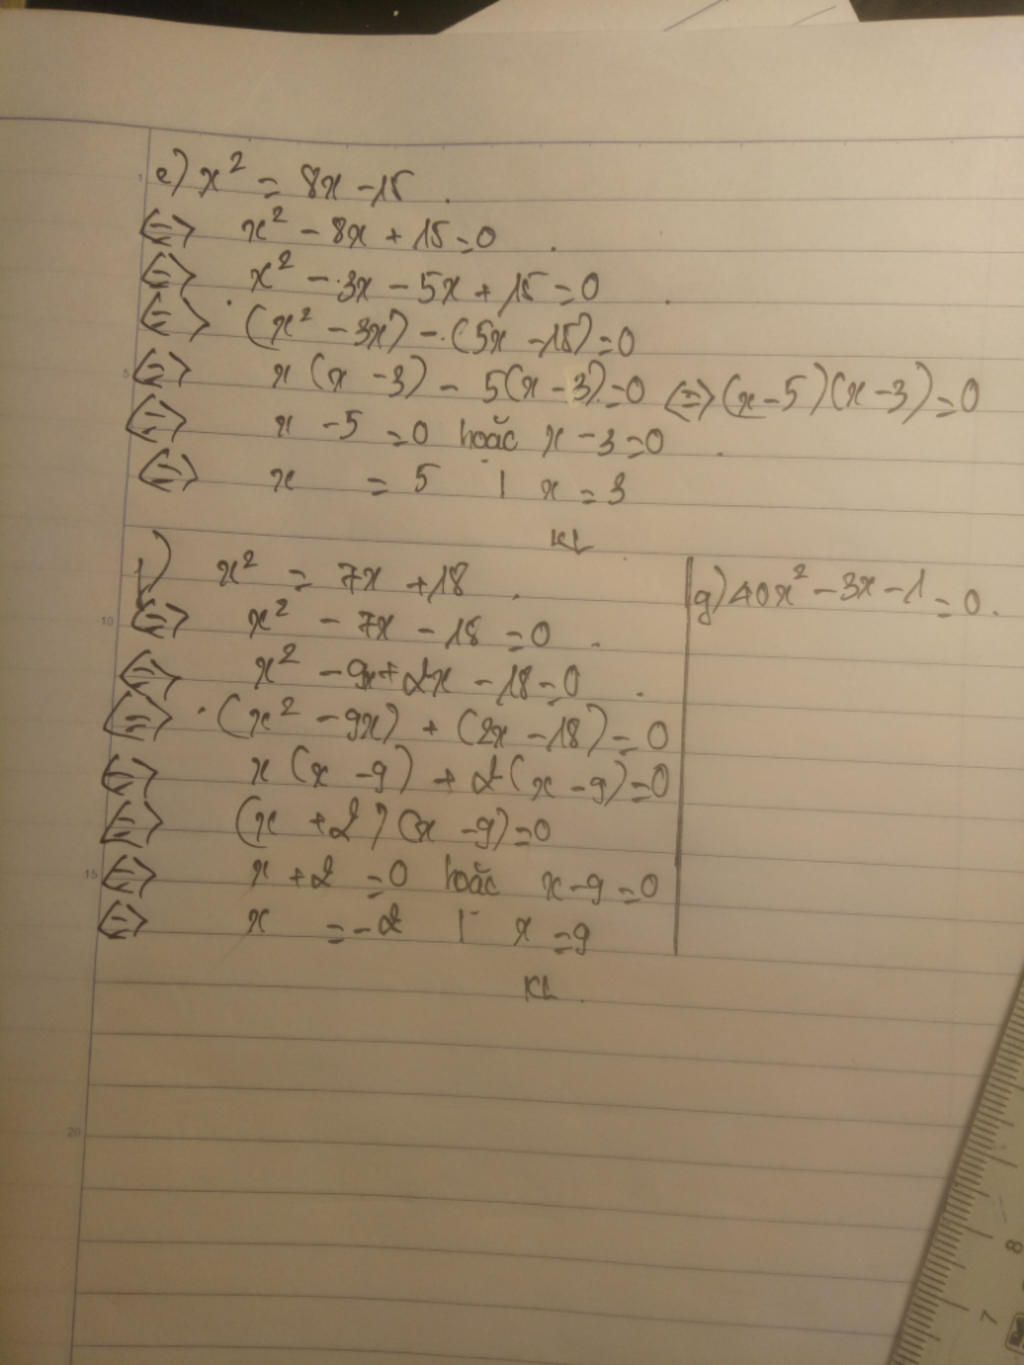 e) x² = 8x - 15 .
<=> x² - 8x + 15 = 0 .
<=> x² - 3x - 5x + 15 = 0 .
<=> (x² - 3x) - (5x - 15) = 0
<=> x (x - 3) - 5(x - 3) = 0 <=> (x - 5)(x - 3) = 0
<=> x - 5 = 0 hoặc x - 3 = 0 .
<=> x = 5 | x = 3
KL
f) x² = 7x + 18 .
<=> x² - 7x - 18 = 0 .
<=> x² - 9x + 2x - 18 = 0 .
<=> (x² - 9x) + (2x - 18) = 0
<=> x (x - 9) + 2(x - 9) = 0
<=> (x + 2)(x - 9) = 0
<=> x + 2 = 0 hoặc x - 9 = 0
<=> x = -2 | x = 9
KL .
g) 40x² - 3x - 1 = 0 .
5
10
15
20
8
7